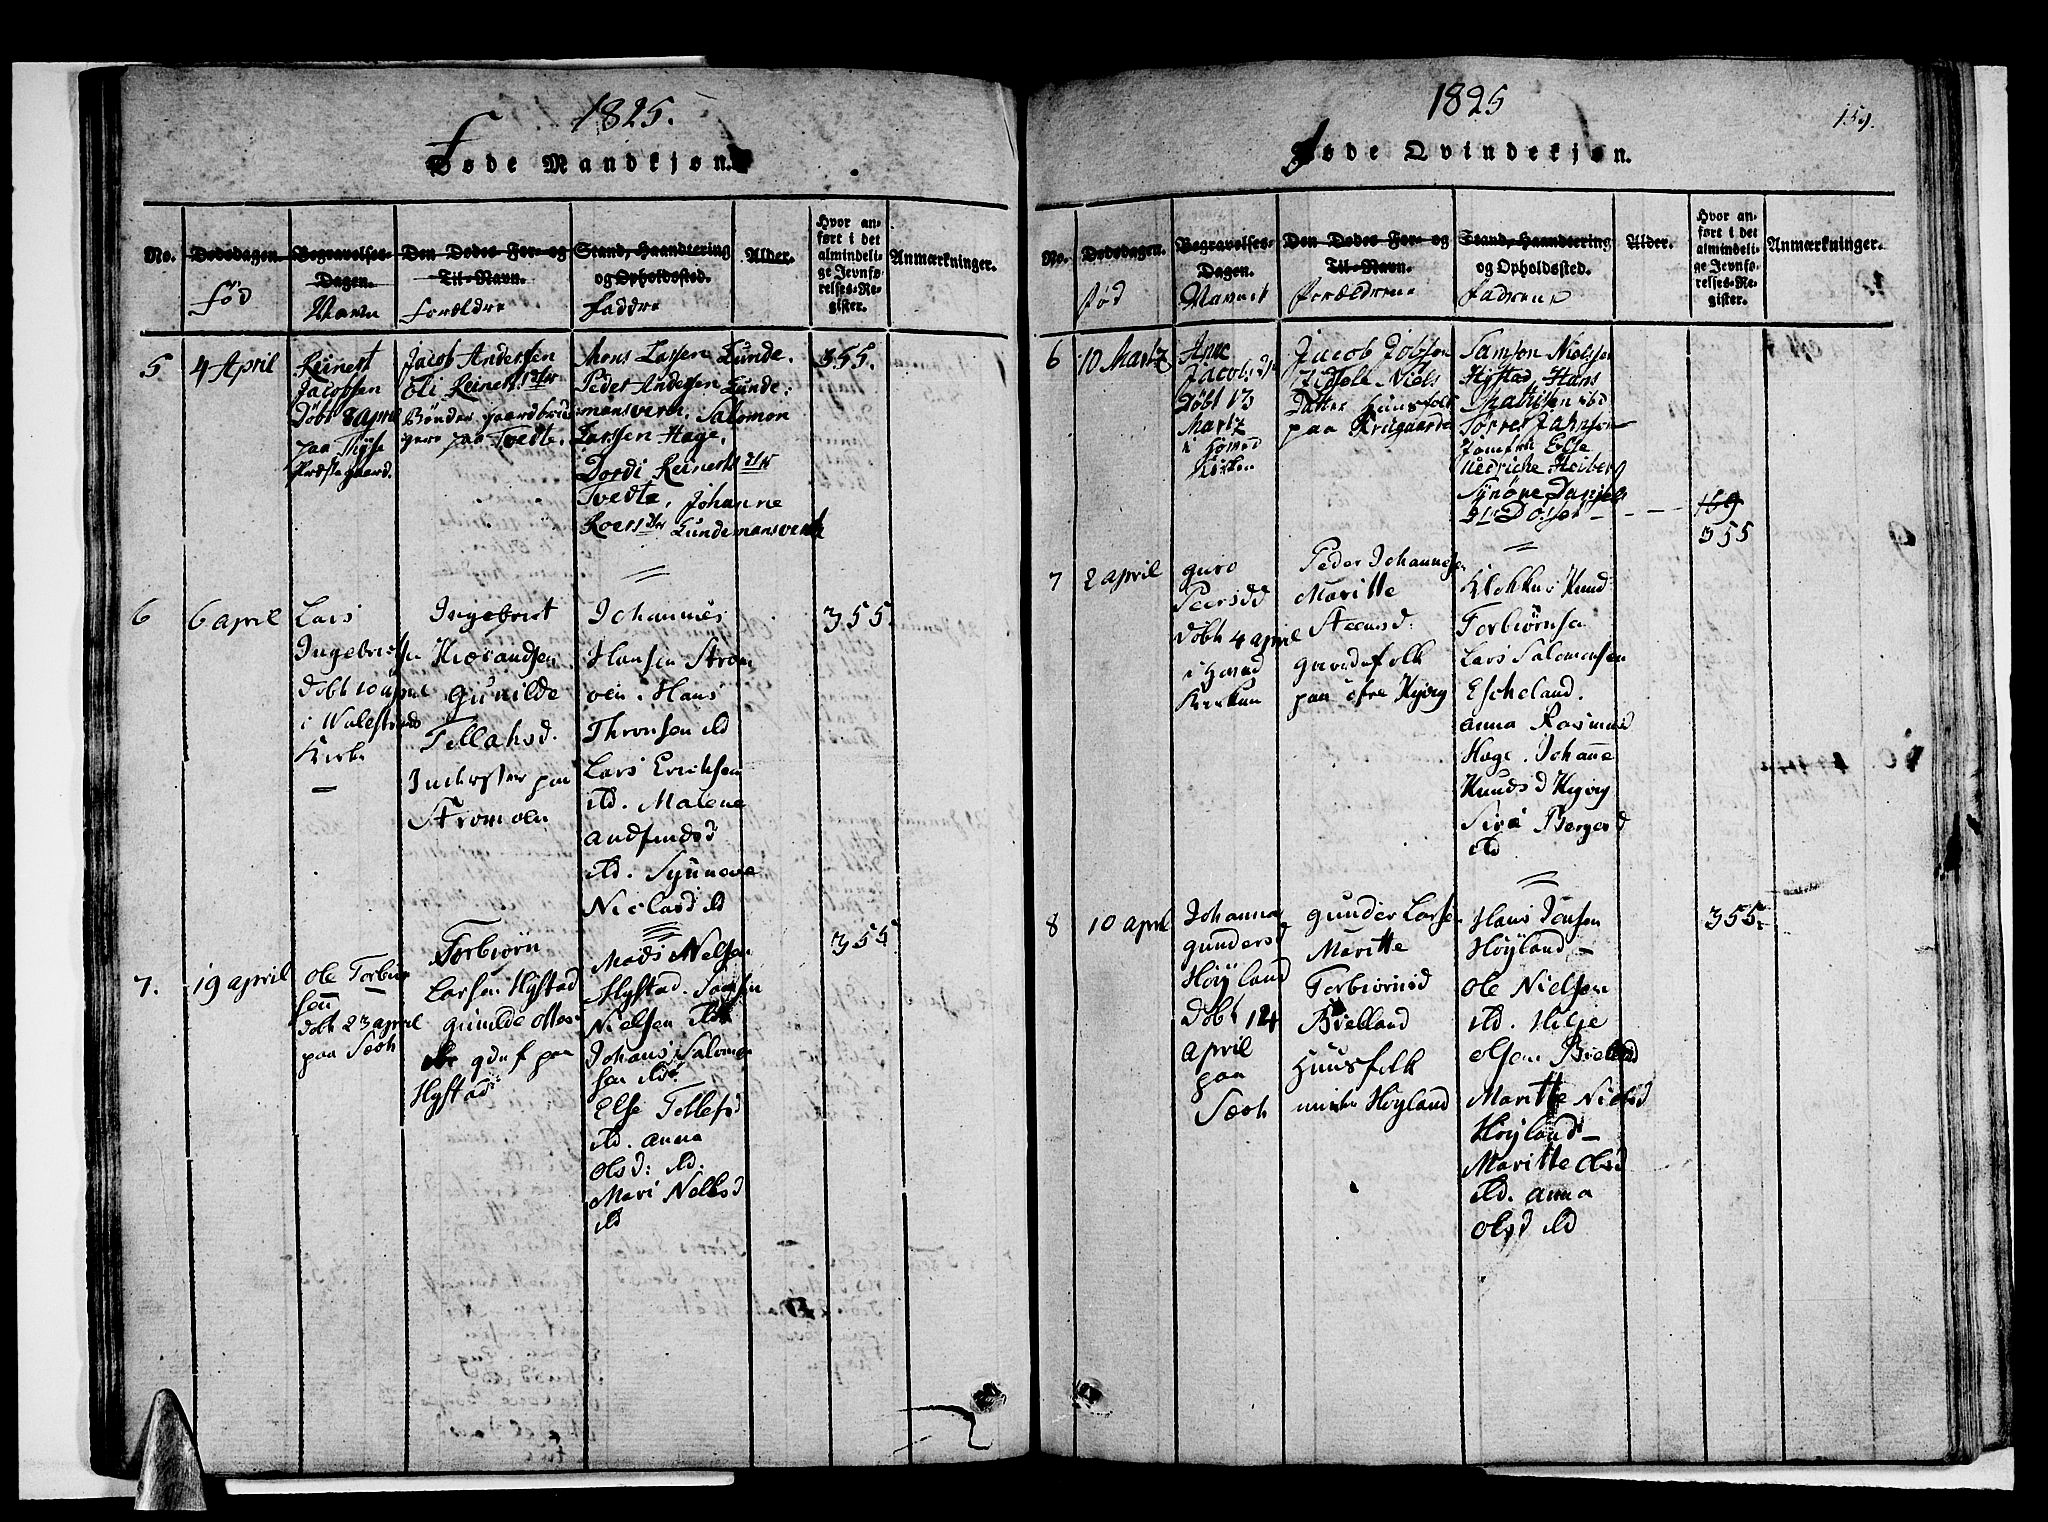 1825.
Føde Mandkjøn.
No.
Dødsdagen.
født
Begravelses-
Dagen.
Navn
Den Dødes For- og
Til-Navn.
Forældre
Stand, Haandtering
og Opholdssted.
Faddre
Alder.
Hvor an-
ført i det
almindeli-
ge Jevnfø-
relses-Re-
gister.
Anmærkninger.
5
4 April
Reinert
Jacobsen
Døbt 8 April
paa
Præstegaard.
Jacob Andersen
Eli Reinertsdtr
Bønder
paa Tvedte.
Mons Larsen Lunde.
Peder Andersen Lunde-
mansverk, Salomon
Larssen Hage,
Dordi Reinertsdtr
Tvedte, Johanne
Roersdtr Lundemansverk
355.
6
6 April
Lars
Ingebretsen
døbt 10 April
i
Kirke
Ingebret
Gunilde
Tellahsd.
Inderster paa
Strømøen
Johannes
Hansen Strøm
øen. Hans
Thronsen ild
Lars Eriksen
ild. Malene
ild. Synnove
Nielsd ild
355.
7.
19 april
Ole Torbiør
sen
døbt 23 april
paa Sæoh
Torbiørn
Larsen Hystad
Gunilde
gdusf paa
Hystad
Mads Nelsen
Hystad. Samsen
Nielsen ild
Johans Salomon
sen ild.
Else Tollefsd
ild. Anna
Olsd: ild:
Mari Nelsd
ild
355
1825
159.
Føde Qvindekjøn.
No.
Dødsdagen.
født
Begravelses-
Dagen.
Navnet
Den Dødes For- og
Til-Navn.
Forældrene
Stand, Haandtering
og Opholdssted.
Fadrene
Alder.
Hvor an-
ført i det
almindeli-
ge Jevnfø-
relses-Re-
gister.
Anmærkninger.
6
10 Martz
Jacobsdtr
Døbt 13
Martz
i Hoved
Kirken
Jacob Jobsen
Niels
Datter Huusfolk
paa
Samson Nielsen
Hystad Hans
Jomfru Else
Uldriche Heiberg
Synøve Daniels
169
355
7
2 april
Guro
Peersd
døbt 4 april
i Hoved
Kirken
Peder Johannesen
Maritte
Steensd:
gaardefolk
paa øfre
Klokker Knud
Torbiørnsen
Lars Salomonsen
Escheland.
Anna Rasmusd
Hage. Johanne
Knudsd
Siri Bergesd
ild
8
10 april
Johanna
Gundersd
Høyland
døbt 14
April
paa
Sæoh
Gunder Larsen
Maritte
Torbiørnsd
Bielland
Huusfolk
Høyland
Hans Jensen
Høyland –
Ole Nielsen
ild. Hilje
Olsen Bielland
Maritte Nielsd
Høyland –
Maritte Olsd
ild. Anna
Olsd ild
355.